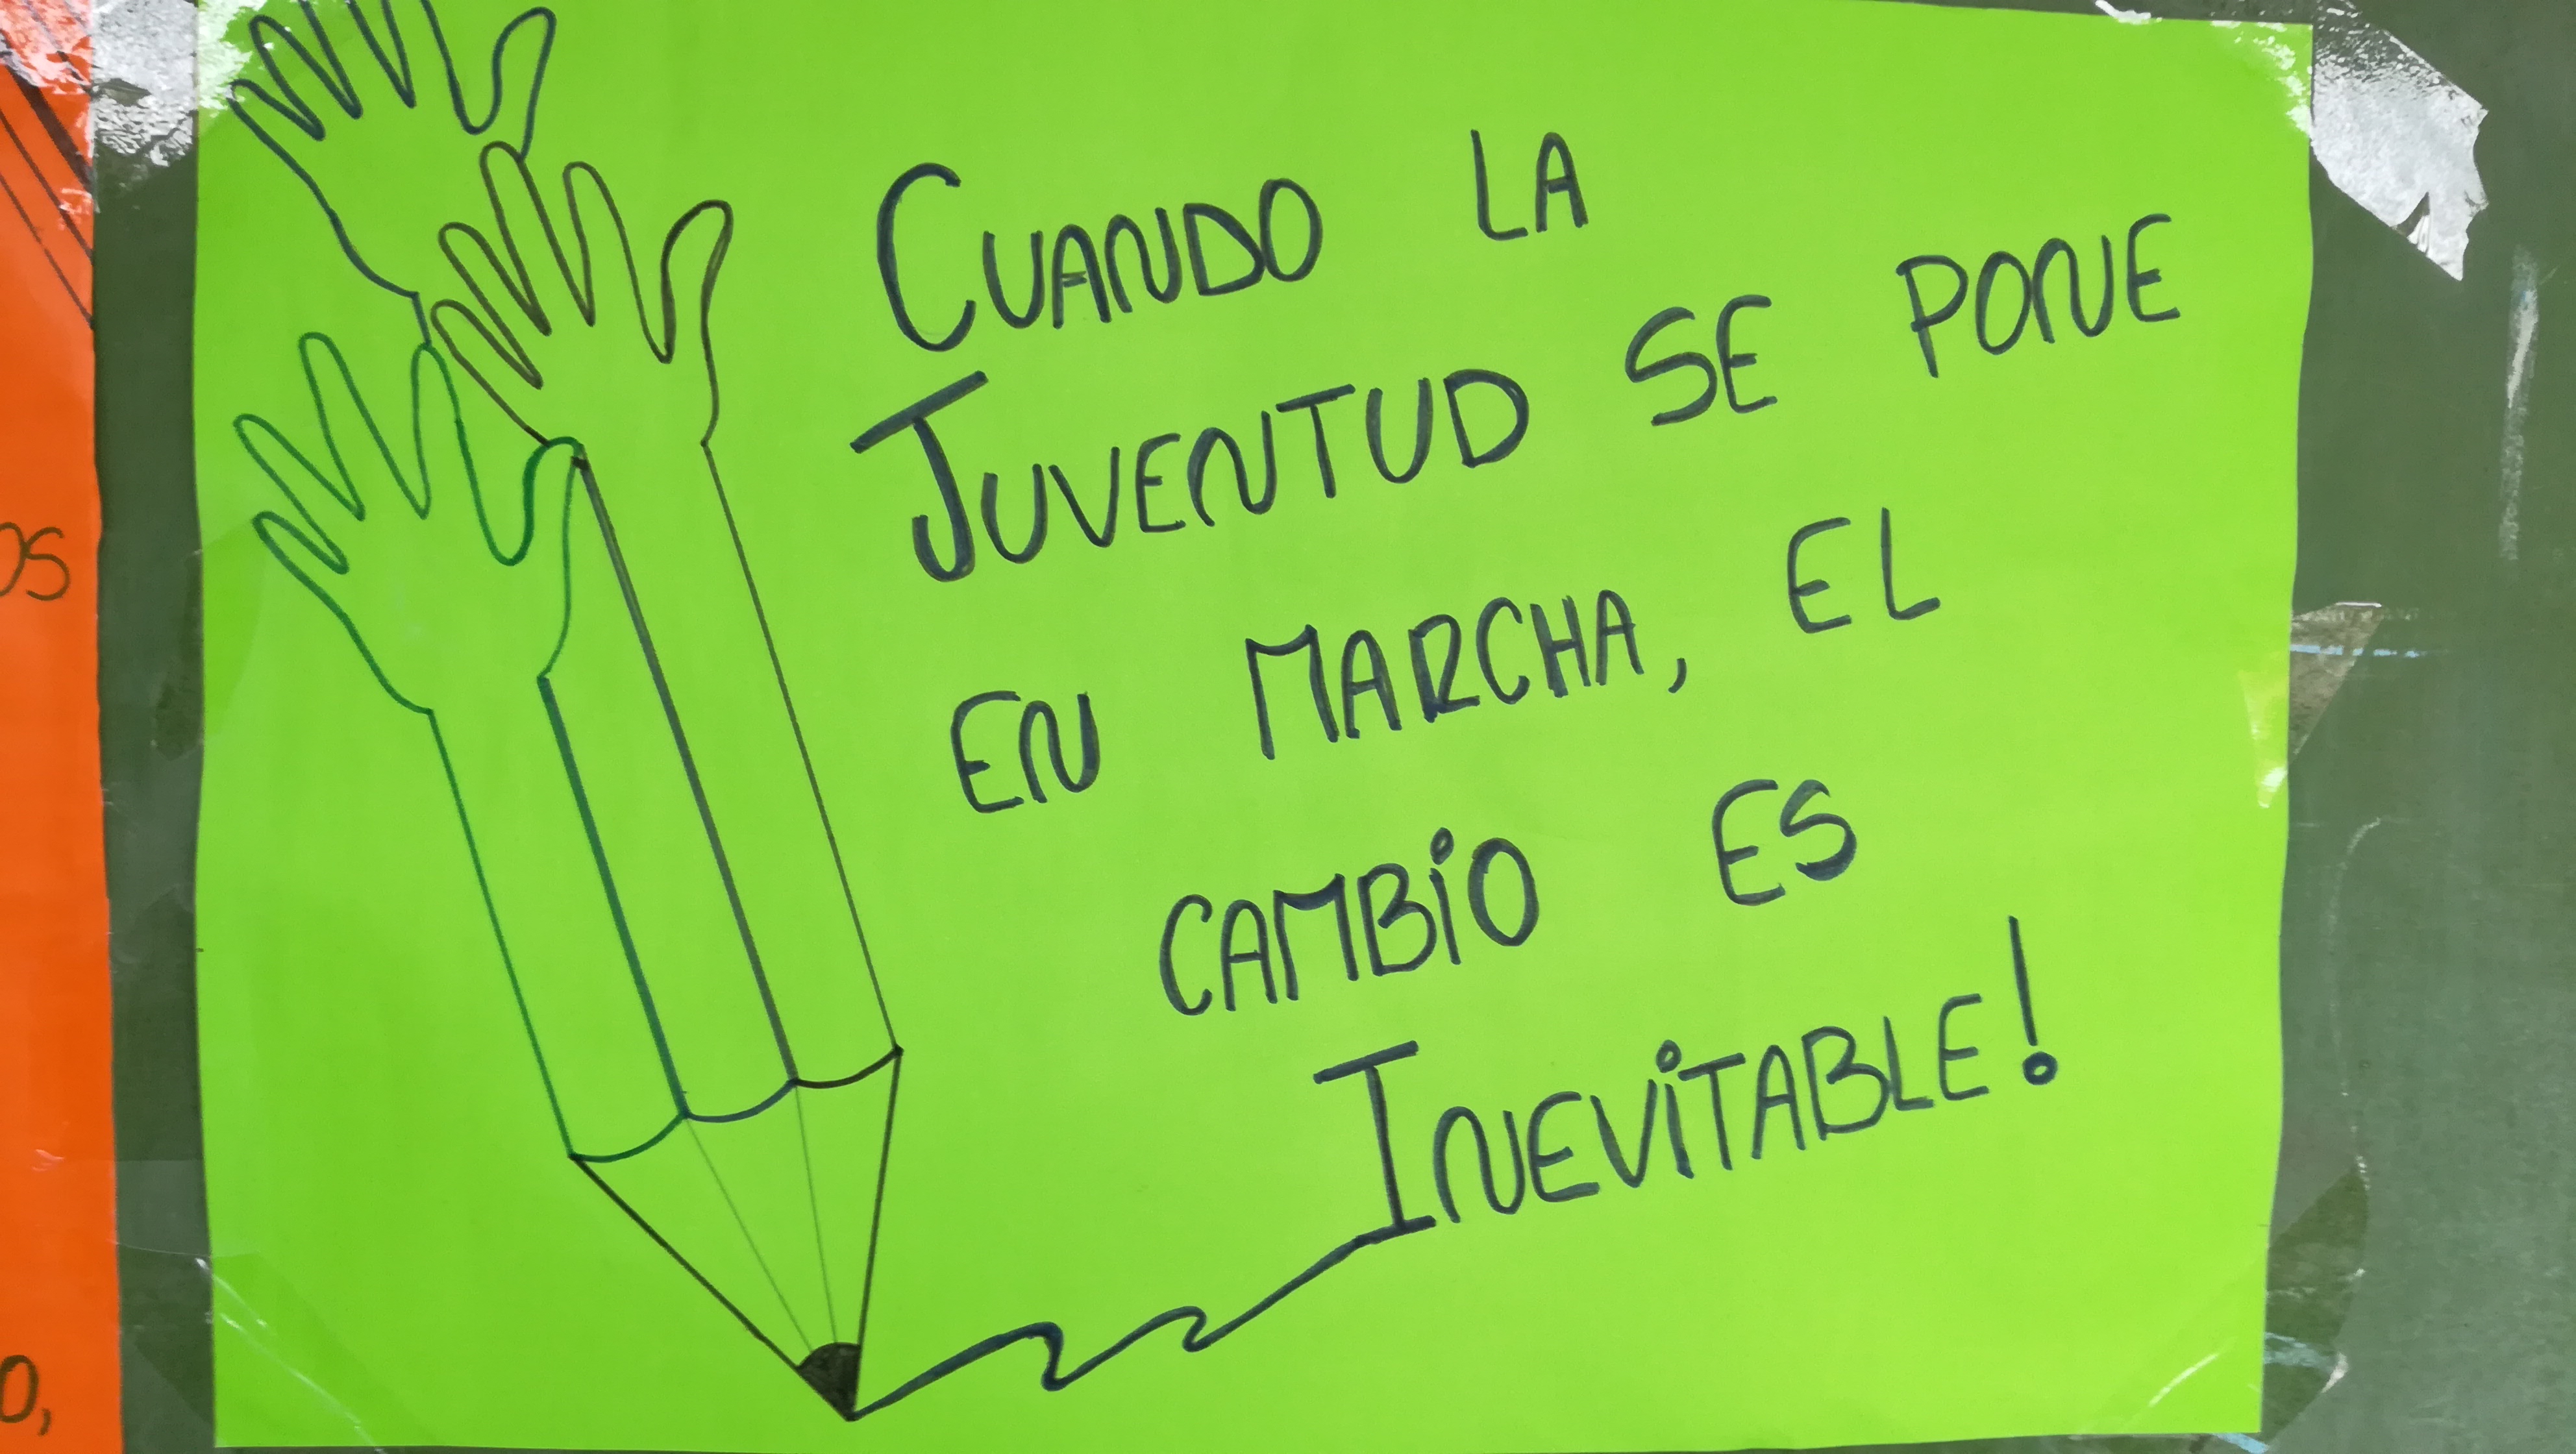 CUANDO LA
JUVENTUD SE PONE
EN MARCHA, EL
CAMBIO ES
INEVITABLE!
OS
O,